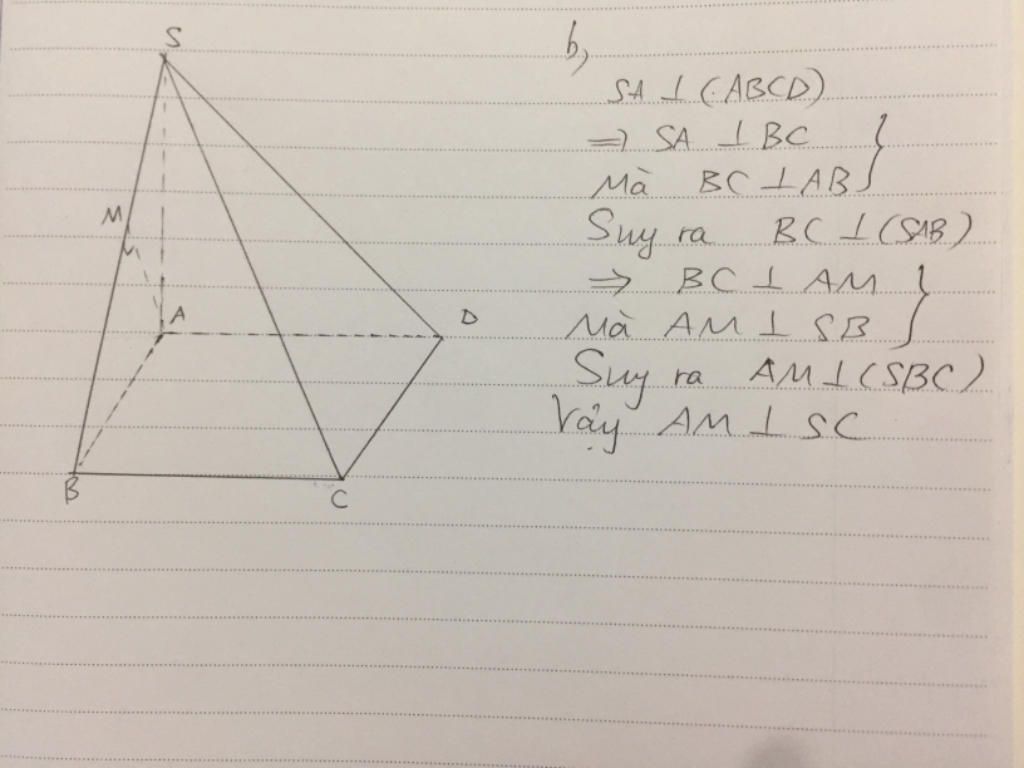 S
M
A
D
B
C
b,
SA ⊥ (ABCD)
⇒ SA ⊥ BC }
Mà BC ⊥ AB
Suy ra BC ⊥ (SAB)
⇒ BC ⊥ AM }
Mà AM ⊥ SB
Suy ra AM ⊥ (SBC)
Vậy AM ⊥ SC